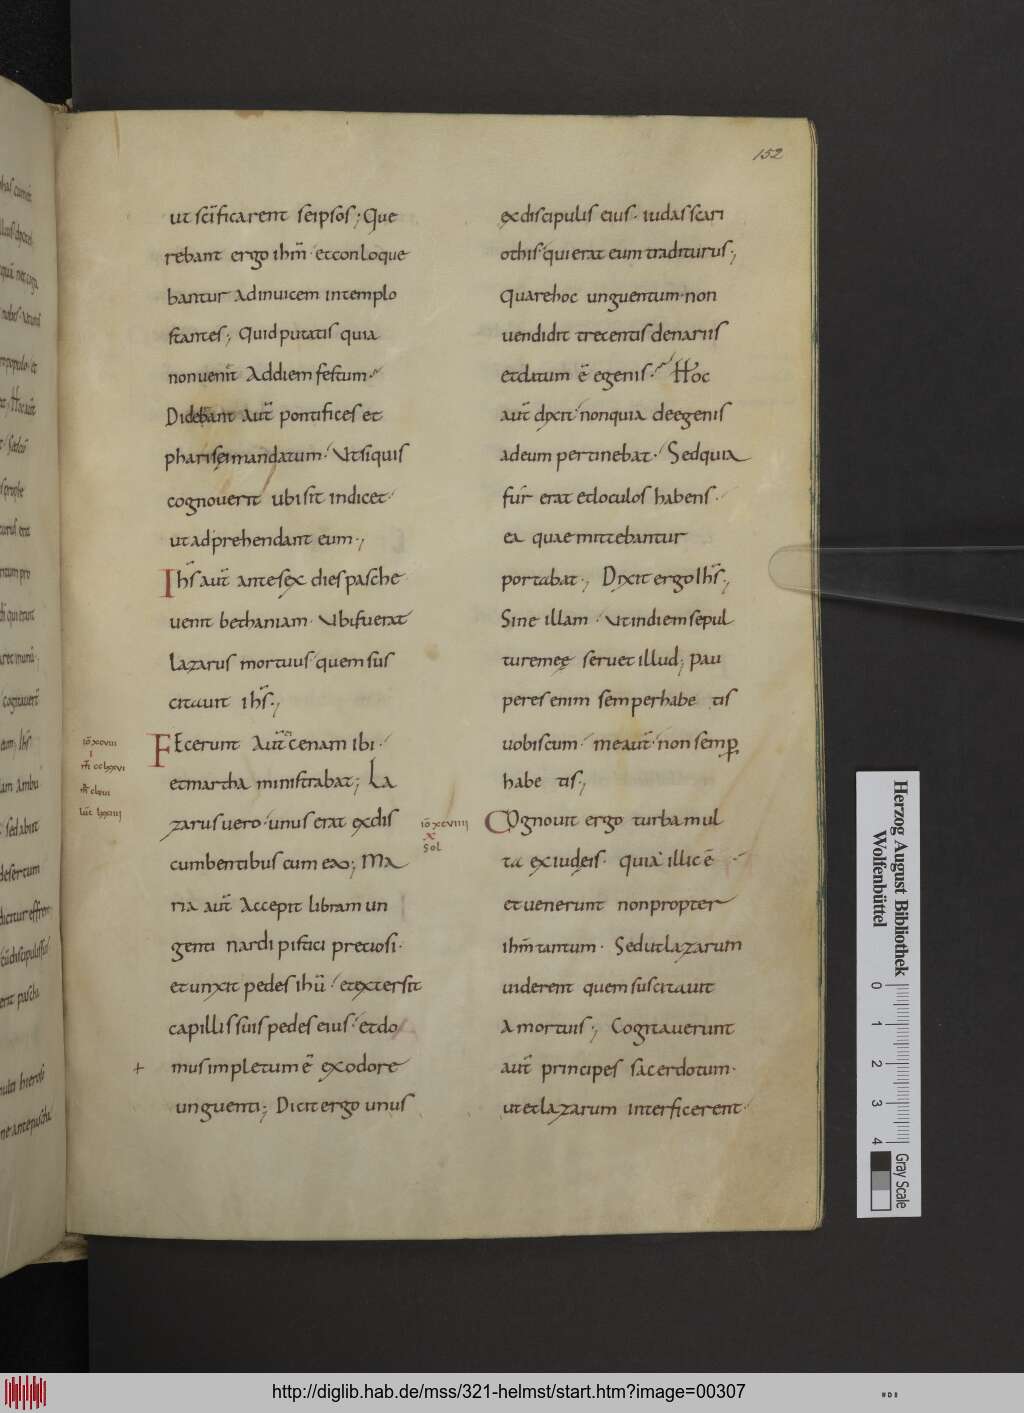 152
ut scīficarent seipsos; Que
rebant ergo ihm̄· et conloque
bantur adinuicem in templo
stantes; Quid putatis quia
non uenit ad diem festum·
Dideb̄ant aut̄ pontifices et
pharisei mandatum· Ut siquis
cognouerit ubi sit indicet·
ut adprehendant eum·,
Ihs̄ aut̄ ante sex dies pasche
uenit bethaniam· Ubi fuerat
lazarus mortuus· quem sus
citauit ihs̄·,
FEcerunt aut̄ ei cenam ibi·
et martha ministrabat; La
zarus uero· unus erat ex dis
cumbentibus cum eo; Ma
ria aut̄ accepit libram un
genti nardi pistici pretiosi·
et unxit pedes ihū· et extersit
capillis suis pedes eius· et do
+ mus impletum ē ex odore
unguenti; Dicit ergo unus
iō xcviii
i
m̄r cclxxvi
lūc lxxiiii
ex discipulis eius· iudas scari
othis· qui erat eum traditurus·,
Quare hoc unguentum· non
uendidit trecentis denariis
et datum ē egenis· Hoc
aut̄ dixit· non quia de egenis
ad eum pertinebat· Sed quia
fur erat et loculos habens·
ea quae mittebantur
portabat·, Dixit ergo Ihs̄·,
Sine illam· Ut in diem sepul
ture meę seruet illud; Pau
peres enim semper habe tis
uobiscum· me aut̄· non semp̱
habe tis·,
COgnouit ergo turba mul
ta ex iudeis· quia illic ē
et uenerunt non propter
ihm̄ tantum· Sed ut lazarum
uiderent quem suscitauit
a mortuis·, Cognitauerunt
aut̄ principes sacerdotum·
ut et lazarum interficerent·
iō xcviiii
x
Sol
Herzog August Bibliothek
Wolfenbüttel
0 1 2 3 4
Gray Scale
http://diglib.hab.de/mss/321-helmst/start.htm?image=00307